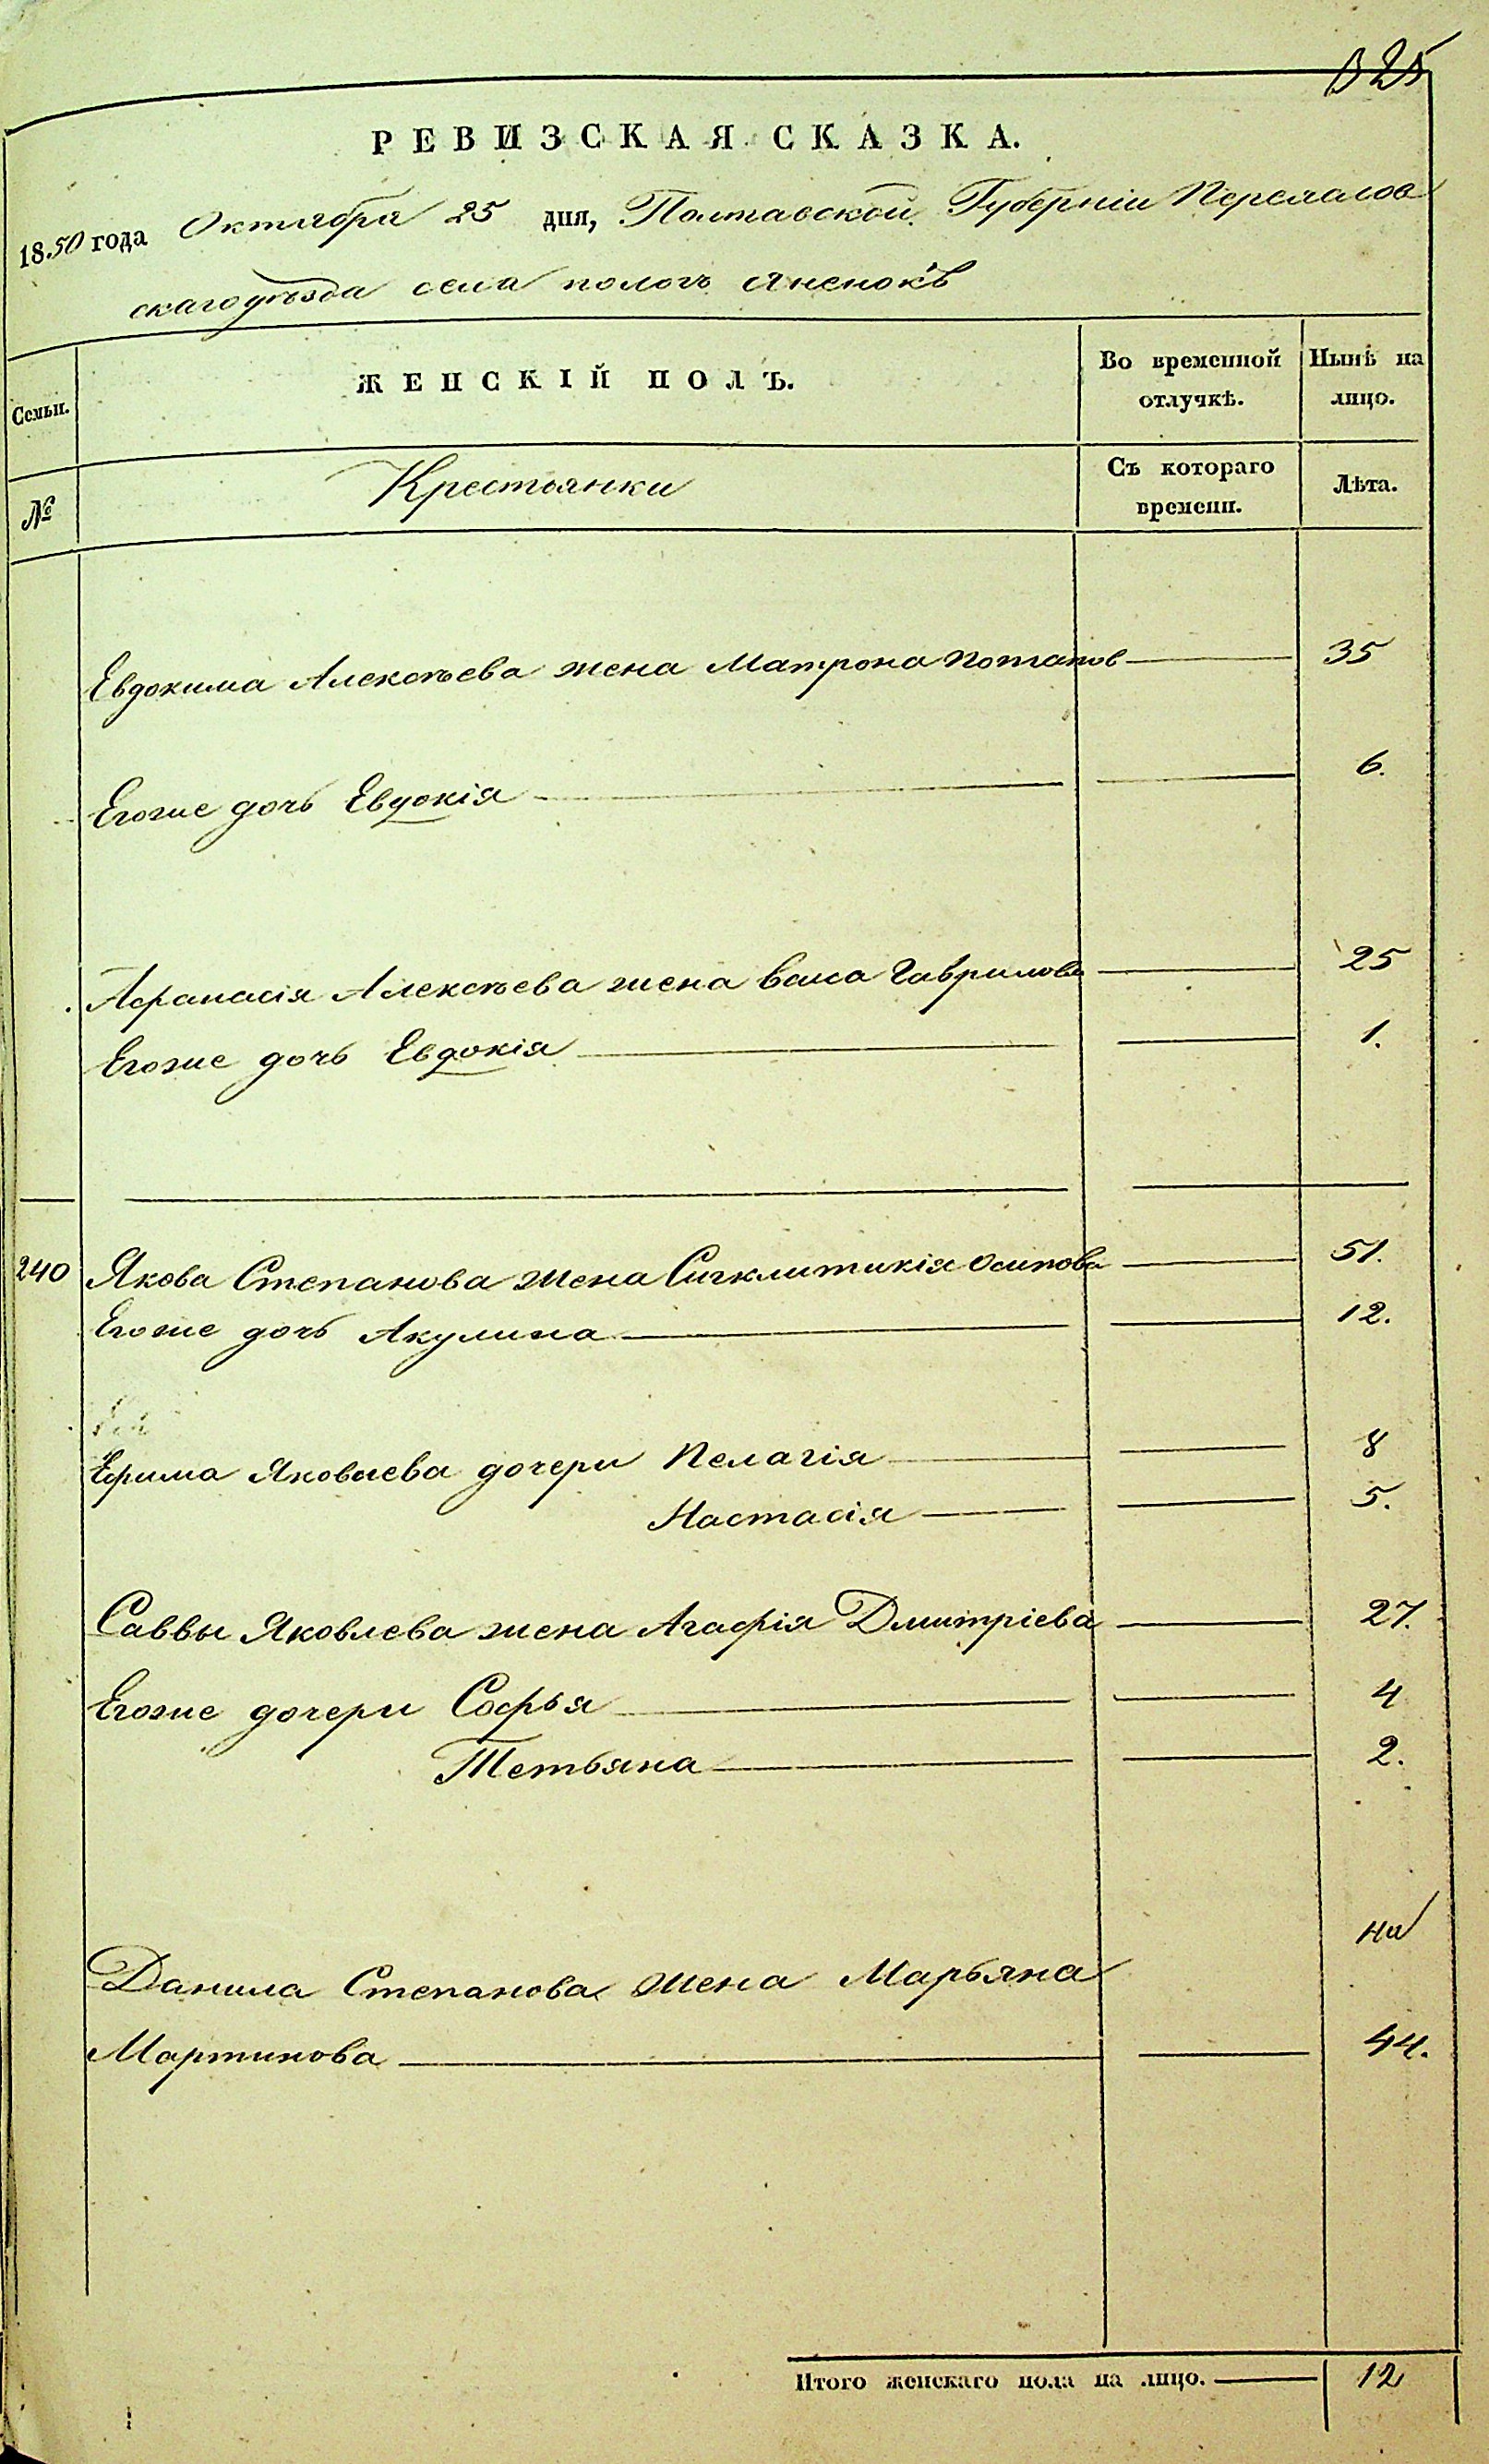 325
РЕВИЗСКАЯ СКАЗКА.
1850 года Октября 25 дня, Полтавской Губерніи Переяслов
скаго уѣзда села пологъ Яненокъ
Семьи. ЖЕНСКІЙ ПОЛЪ. Во временной отлучкѣ. Нынѣ на лицо.
№ Крестьянки Съ котораго времени. Лѣта.
Евдокима Алексѣева жена Матрона Потапов 35
Егоже дочь Евдокія 6.
Афанасія Алексѣева жена Васса Гаврилова 25
Егоже дочь Евдокія 1.
240 Якова Степанова жена Сигклитикія Осипова 51.
Егоже дочь Акулина 12.
Ефима Яковлева дочери Пелагія 8
Настасія 5.
Саввы Яковлева жена Агафія Дмитріева 27.
Егоже дочери Софья 4
Тетьяна 2.
Данила Степанова жена Марьяна
Мартинова 44.
Итого женскаго пола на лицо. 12